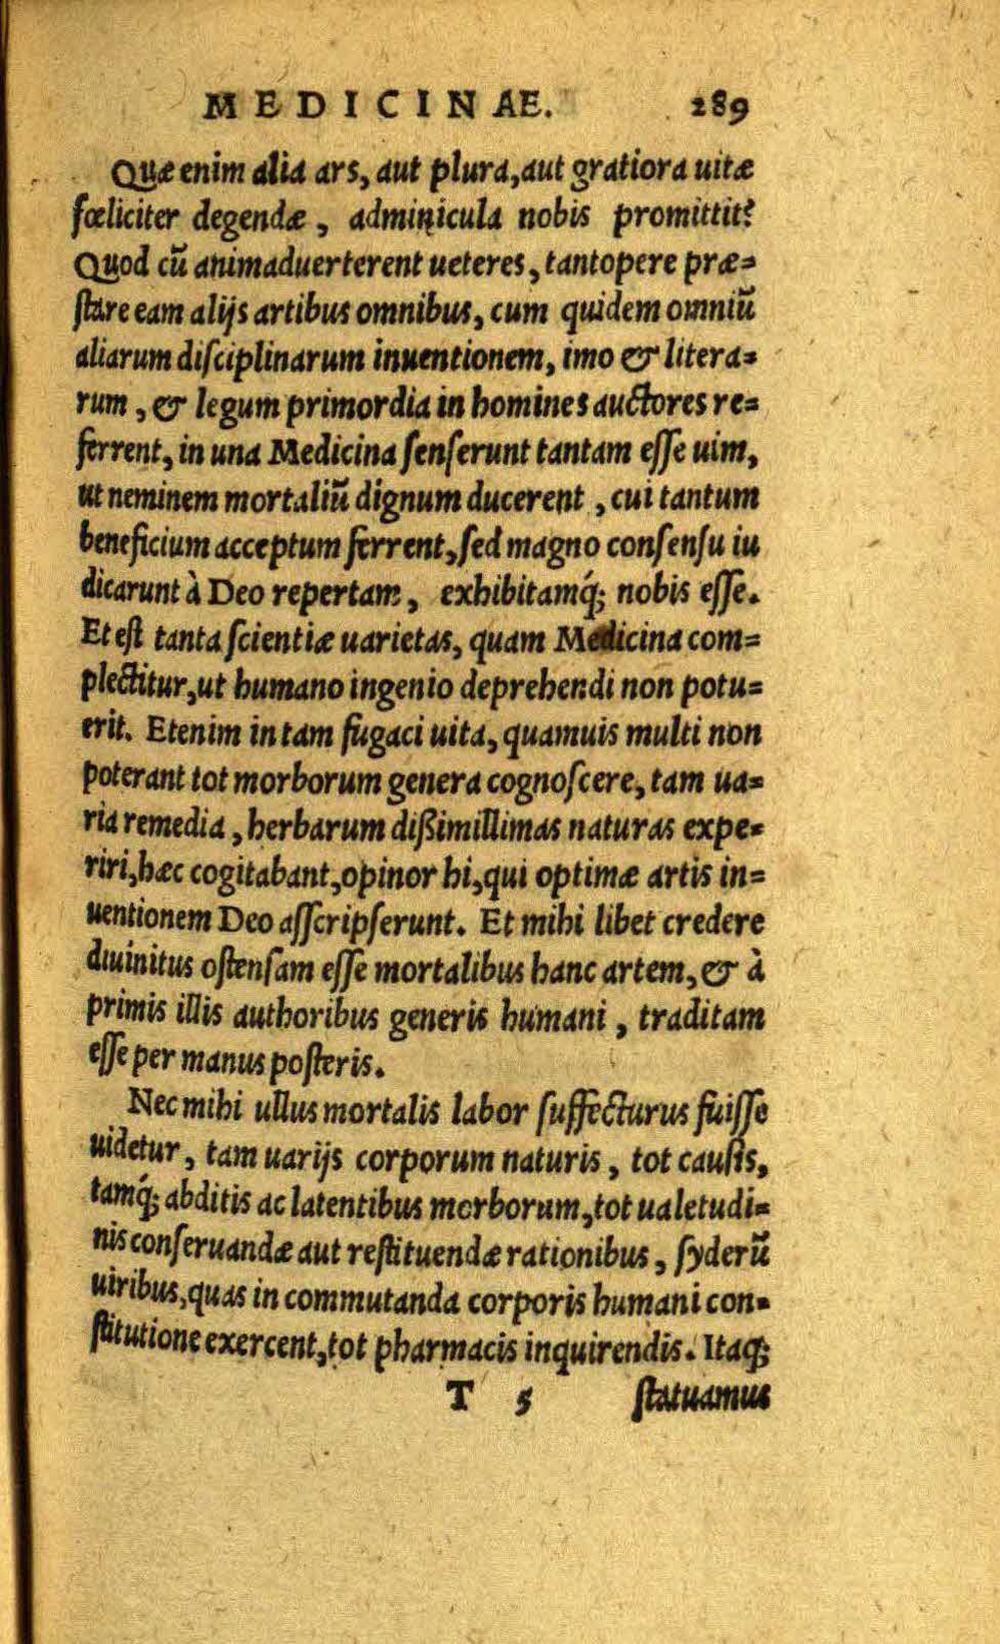 MEDICINAE. 289
Quæ enim alia ars, aut plura, aut gratiora uitæ
fœliciter degendæ, adminicula nobis promittit?
Quod cũ animaduerterent ueteres, tantopere præ=
ſtare eam alijs artibus omnibus, cum quidem omniũ
aliarum diſciplinarum inuentionem, imo & litera=
rum, & legum primordia in homines auctores re=
ferrent, in una Medicina ſenſerunt tantam eſſe uim,
ut neminem mortaliũ dignum ducerent, cui tantum
beneficium acceptum ferrent, ſed magno conſenſu iu
dicarunt à Deo repertam, exhibitamq́; nobis eſſe.
Et eſt tanta ſcientiæ uarietas, quam Medicina com=
plectitur, ut humano ingenio deprehendi non potu=
erit. Etenim in tam fugaci uita, quamuis multi non
poterant tot morborum genera cognoſcere, tam ua=
ria remedia, herbarum dißimillimas naturas expe=
riri, hæc cogitabant, opinor hi, qui optimæ artis in=
uentionem Deo aſſcripſerunt. Et mihi libet credere
diuinitus oſtenſam eſſe mortalibus hanc artem, & à
primis illis authoribus generis humani, traditam
eſſe per manus poſteris.
Nec mihi ullus mortalis labor ſuffecturus fuiſſe
uidetur, tam uarijs corporum naturis, tot cauſis,
tamq́; abditis ac latentibus morborum, tot ualetudi=
nis conſeruandæ aut reſtituendæ rationibus, ſyderũ
uiribus, quas in commutanda corporis humani con=
ſtitutione exercent, tot pharmacis inquirendis. Itaq;
T 5 ſtatuamus